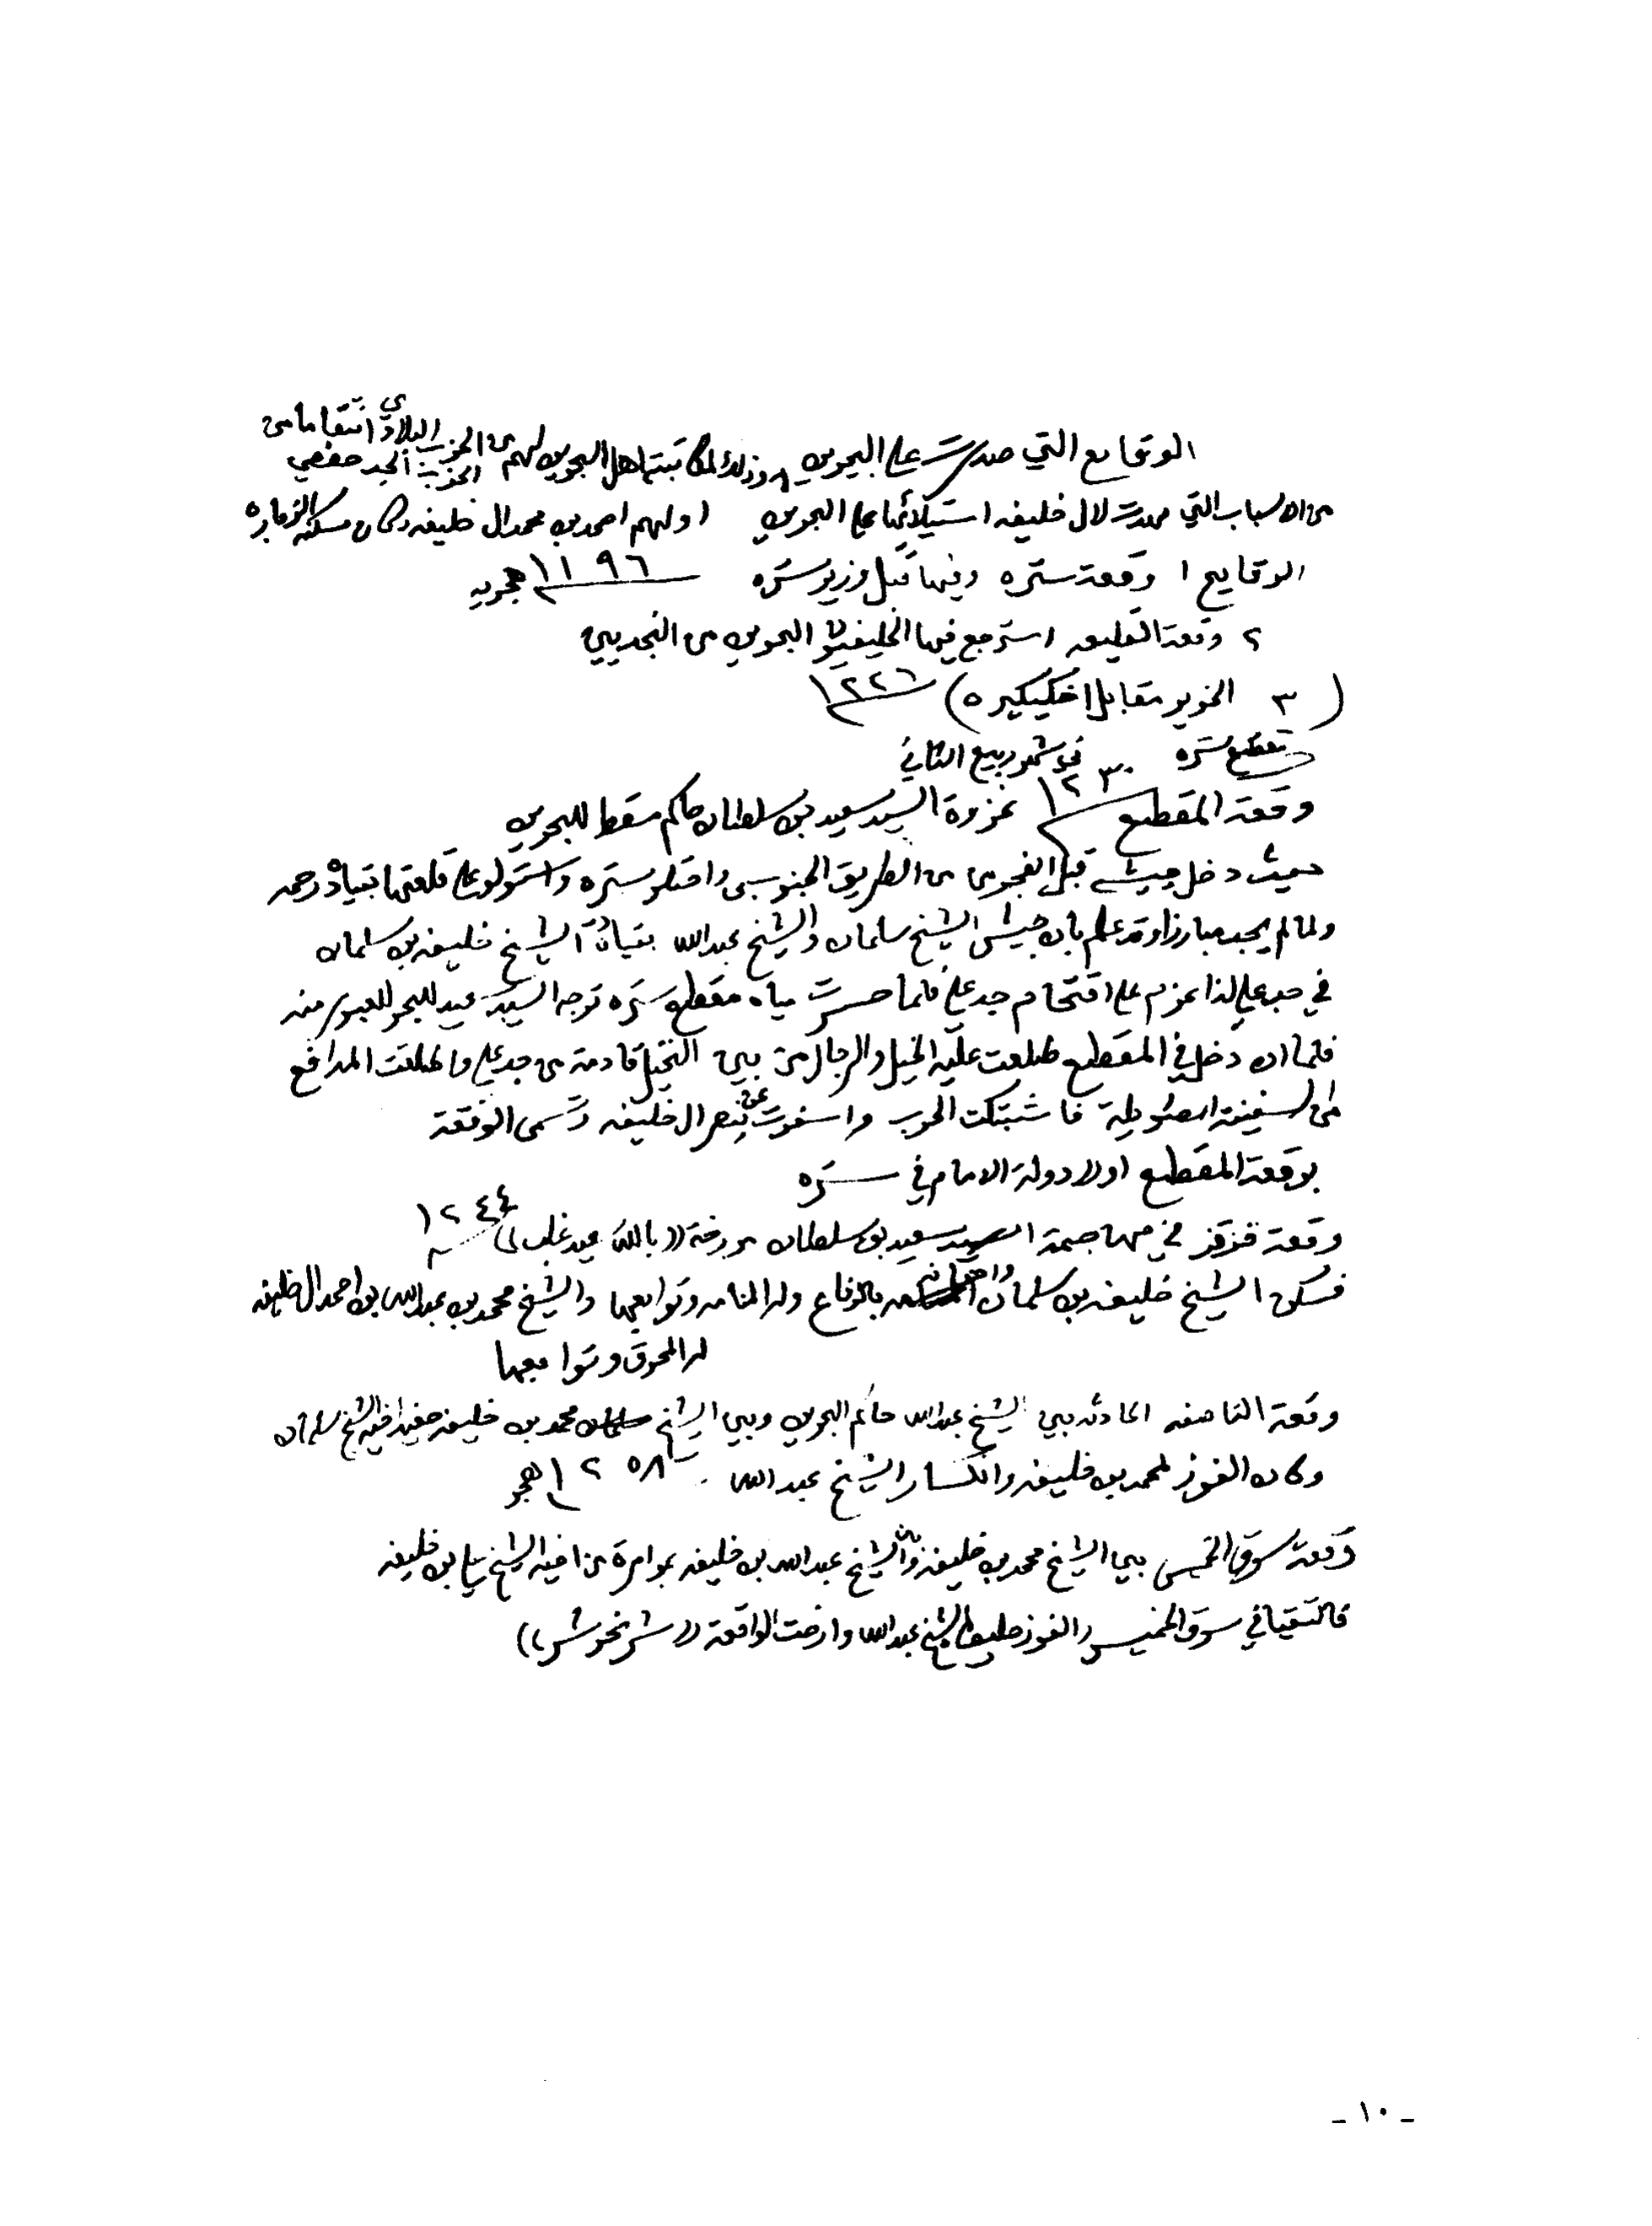 الوقايع التي صدرت على البحرين وذلك لمكاتبتها اهل البحرين لهم من الحزب البلادي انتقاما من
الحزب الجد حفصي
من الاسباب التي مهدت لال خليفه استيلائها على البحرين اولهم احمد بن محمد ال خليفه وكان مسكنه الزباره
الوقايع ١ وقعة ستره وفيها قتل وزير ستره ١١٩٦ هجريه
٢ وقعة القليعه استرجع فيها الخليفيون البحرين من النجديين
(٣ الخوير مقابل اخكيكيره) ١٢٢٦
مقطع ستره في شهر ربيع الثاني
وقعة المقطع ١٢٣٠ غزوة السيد سعيد بن سلطان حاكم مسقط للبحرين
حيث دخل جيشه قبل الفجر من الطريق الجنوبي واحتلو ستره واستولو على قلعتها بقيادة رحمه
ولما لم يجد مبارزا وقد علم بان جيش الشيخ سلمان والشيخ عبدالله بقيادة الشيخ خليفه بن سلمان
في جدعلي لذا عزم على اقتحام جدعلي فلما حسرت مياه مقطع ستره توجه السيد للبحر للعبور منه
فلما ان دخل في المقطع طلعت عليه الخيل والرجال من بين النخيل قادمة من جدعلي واطلقت المدافع
من السفينة فاشتبكت الحرب واسفرت عن نصر ال خليفه وتسمى الوقعة
بوقعة المقطع اولاد دولة الامام في ستره
وقعة قزقز في مهاجمة السيد سعيد بن سلطان مورخة ((بالله عيد غلب)) ١٢٤٤
فسكن الشيخ خليفه بن سلمان واخوانه بالرفاع وله المنامه وتوابعها والشيخ محمد بن عبدالله بن احمد ال خليفه
له المحرق وتوابعها
وقعة الناصفه الحادثه بين الشيخ عبدالله حاكم البحرين وبين الشيخ محمد بن خليفه حفيد اخيه الشيخ سلمان
وكان الفوز لمحمد بن خليفه وانكسار الشيخ عبدالله ١٢٥٨ هجر
وقعة سوق الخميس بين الشيخ محمد بن خليفه وبين الشيخ عبدالله بن خليفه بموامرة من اخيه الشيخ علي بن خليفه
فالتقيا في سوق الخميس والفوز حليف الشيخ عبدالله وارخت الواقعة ((شر نحوش))
- ١٠ -